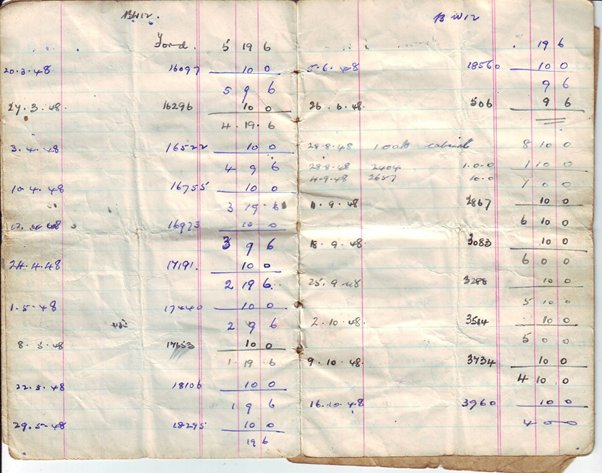 Ford. 5 19 6
20.3.48 16097 10 0
5 9 6
27.3.48 16296 10 0
4.19.6
3.4.48 16522 10 0
4 9 6
10.4.48 16755 10 0
3 19.6
16973 10 0
3 9 6
24.4.48 17191. 10 0
2 19 6.
1.5.48 17440 10 0
2 9 6
8.5.48 10 0
1.19 6
22.5.48 18106 10 0
1 9 6
29.5.48 18295 10 0
19 6
19 6
5.6.48 18560 10 0
9 6
26.6.48 506 9 6
28.8.48 8 10 0
28.8.48 2404 1.0.0 1 10 0
4.9.48 2627 10.0
7 0 0
11.9.48 2867 10 0
6 10 0
18.9.48 3083 10 0
6 0 0
25.9.48 3288 10 0
5 10 0
2.10.48 3514 10 0
5 0 0
9.10.48 3734 10 0
4 10 0
16.10.48 3960 10 0
4 0 0